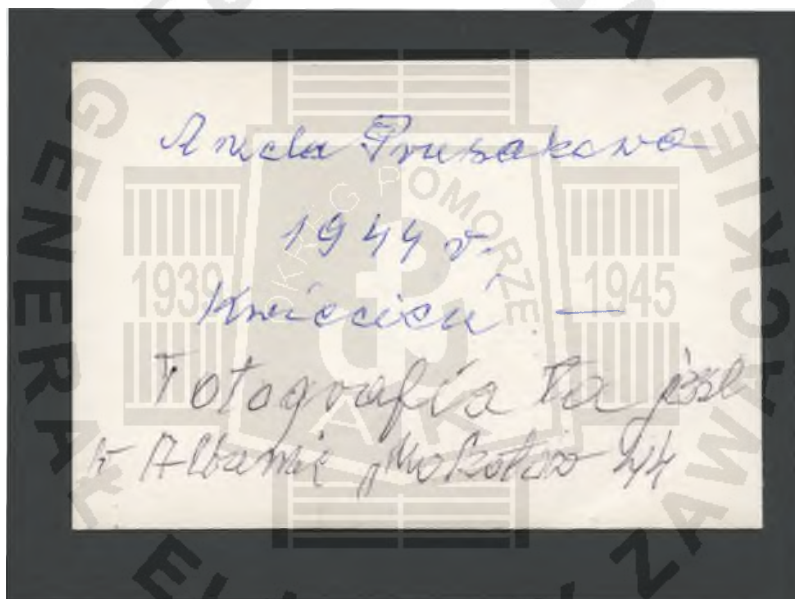 Aniela Prusakowa
1944 r.
Kwiecień —
Fotografia ta jest
w Albumie „Mokotów 44
1939
1945
OKRĘG POMORZE
AK
GENERAŁ
ZAWACKIEJ